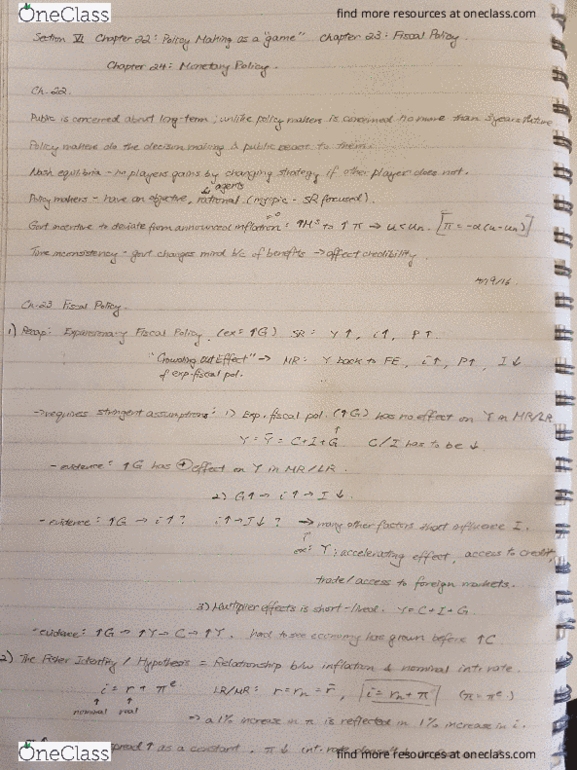 OneClass
find more resources at oneclass.com
Section VI Chapter 22: Policy Making as a "game" Chapter 23: Fiscal Policy.
Chapter 24: Monetary Policy.
Ch. 22.
Public is concerned about long-term; unlike policy makers is concerned no more than 5 years future
Policy makers do the decision making & public react to them.
Nash equilibria - no players gains by changing strategy if other player does not.
& agents
Policy makers - have an objective, rational (myopic - SR focused).
Govt incentive to deviate from announced inflation: ↑Mˢ to ↑π → u<un. [π = -α(u-un)]
Time inconsistency - govt changes mind b/c of benefits → affect credibility.
Ch. 23 Fiscal Policy.
1) Recap: Expansionary Fiscal Policy. (ex: ↑G) SR: Y↑, i↑, P↑
"Crowding Out Effect" → MR: Y back to FE, i↑, P↑, I↓
of exp. fiscal pol.
→ requires stringent assumptions: 1) Exp. fiscal pol. (↑G) has no effect on Y in MR/LR
Y = Ȳ = C+I+G C/I has to be ↓
- evidence: ↑G has ⊕ effect on Y in MR/LR.
2) G↑ → i↑ → I↓.
- evidence: ↑G → i↑? i↑→I↓? → many other factors that influence I.
ex: Y: accelerating effect, access to credit,
trade/access to foreign markets.
3) Multiplier effects is short-lived. Y=C+I+G.
- evidence: ↑G → ↑Y → C → ↑Y. have to see economy has grown before ↑C
2) The Fisher Identity / Hypothesis = Relationship b/w inflation & nominal int. rate.
i = r + πᵉ LR/MR: r = rn = r̄, i = rn + π (π = πᵉ)
nominal real
→ a 1% increase in π is reflected in 1% increase in i.
spread ↑ as a constant, π↓ int. rate
OneClass
find more resources at oneclass.com